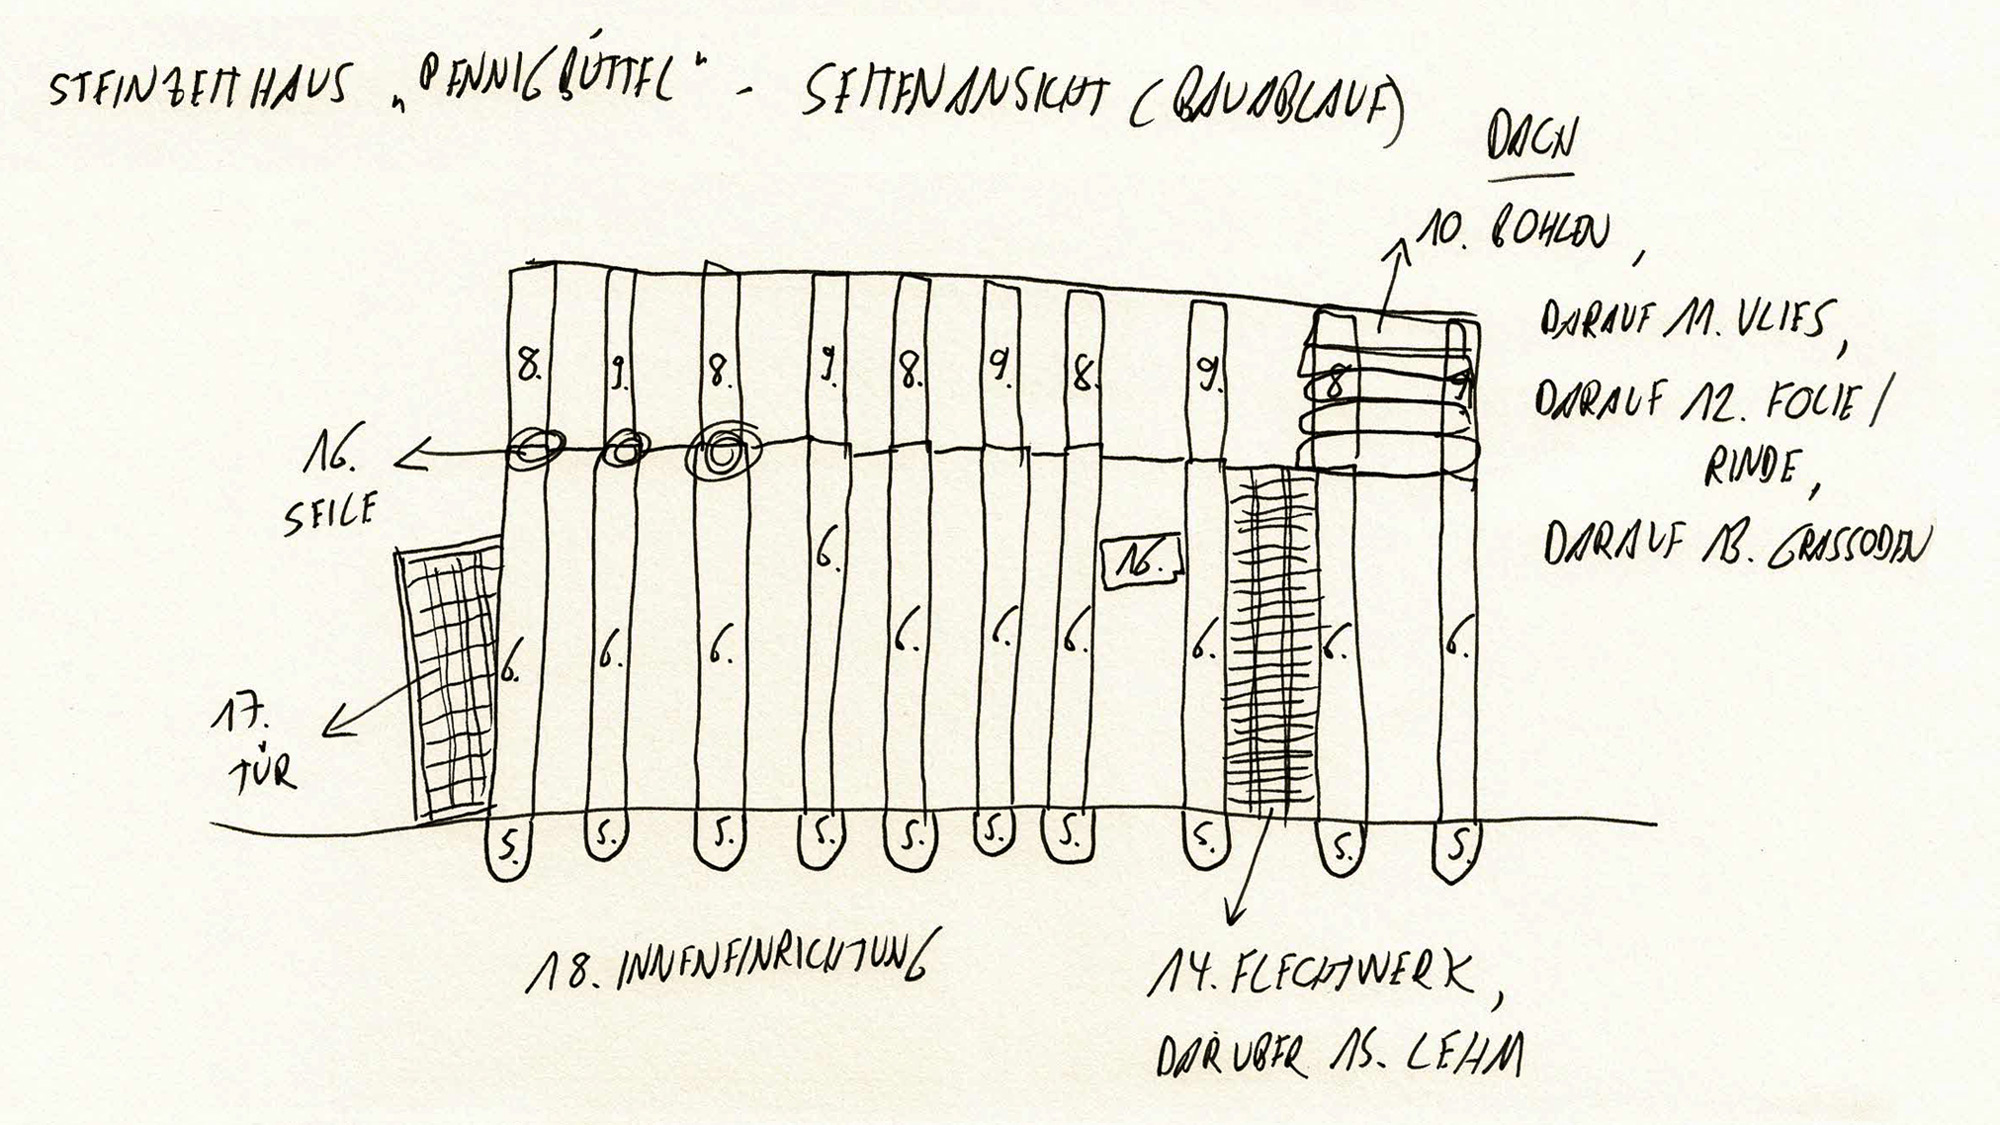 STEINZEITHAUS „PENNIGBÜTTEL" - SEITENANSICHT (BAUABLAUF)
DACH
10. BOHLEN,
DARAUF 11. VLIES,
DARAUF 12. FOLIE/
RINDE,
DARAUF 13. GRASSODEN
8. 9. 8. 9. 8. 9. 8. 9. 8 9
16.
SEILE
6.
16.
6. 6. 6. 6. 6. 6. 6. 6. 6.
17.
TÜR
5. 5. 5. 5. 5. 5. 5. 5. 5. 5.
18. INNENEINRICHTUNG
14. FLECHTWERK,
DARÜBER 15. LEHM